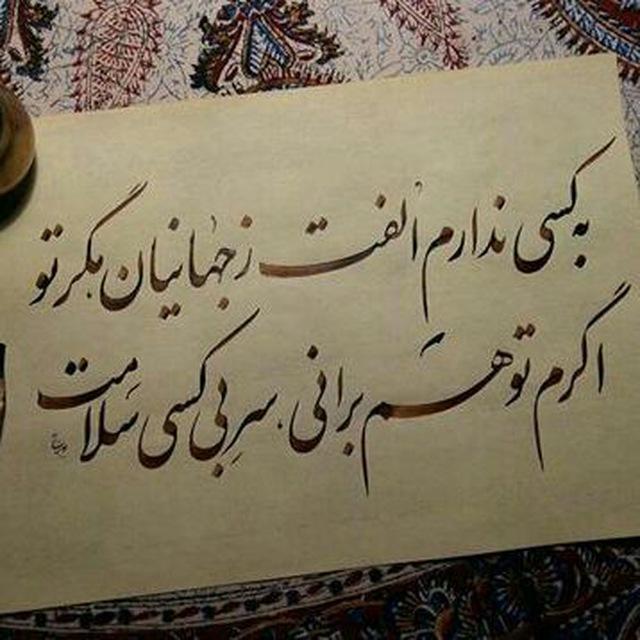 به کسی ندارم اُلفت ز جهانیان مگر تو
اگرم تو هم برانی، سرِ بی کسی سَلامت